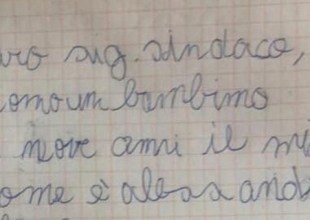 aro sig. sindaco,
sono un bambino
nove anni il mi
ome è alessand